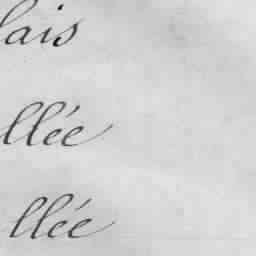 lais
llée
llée